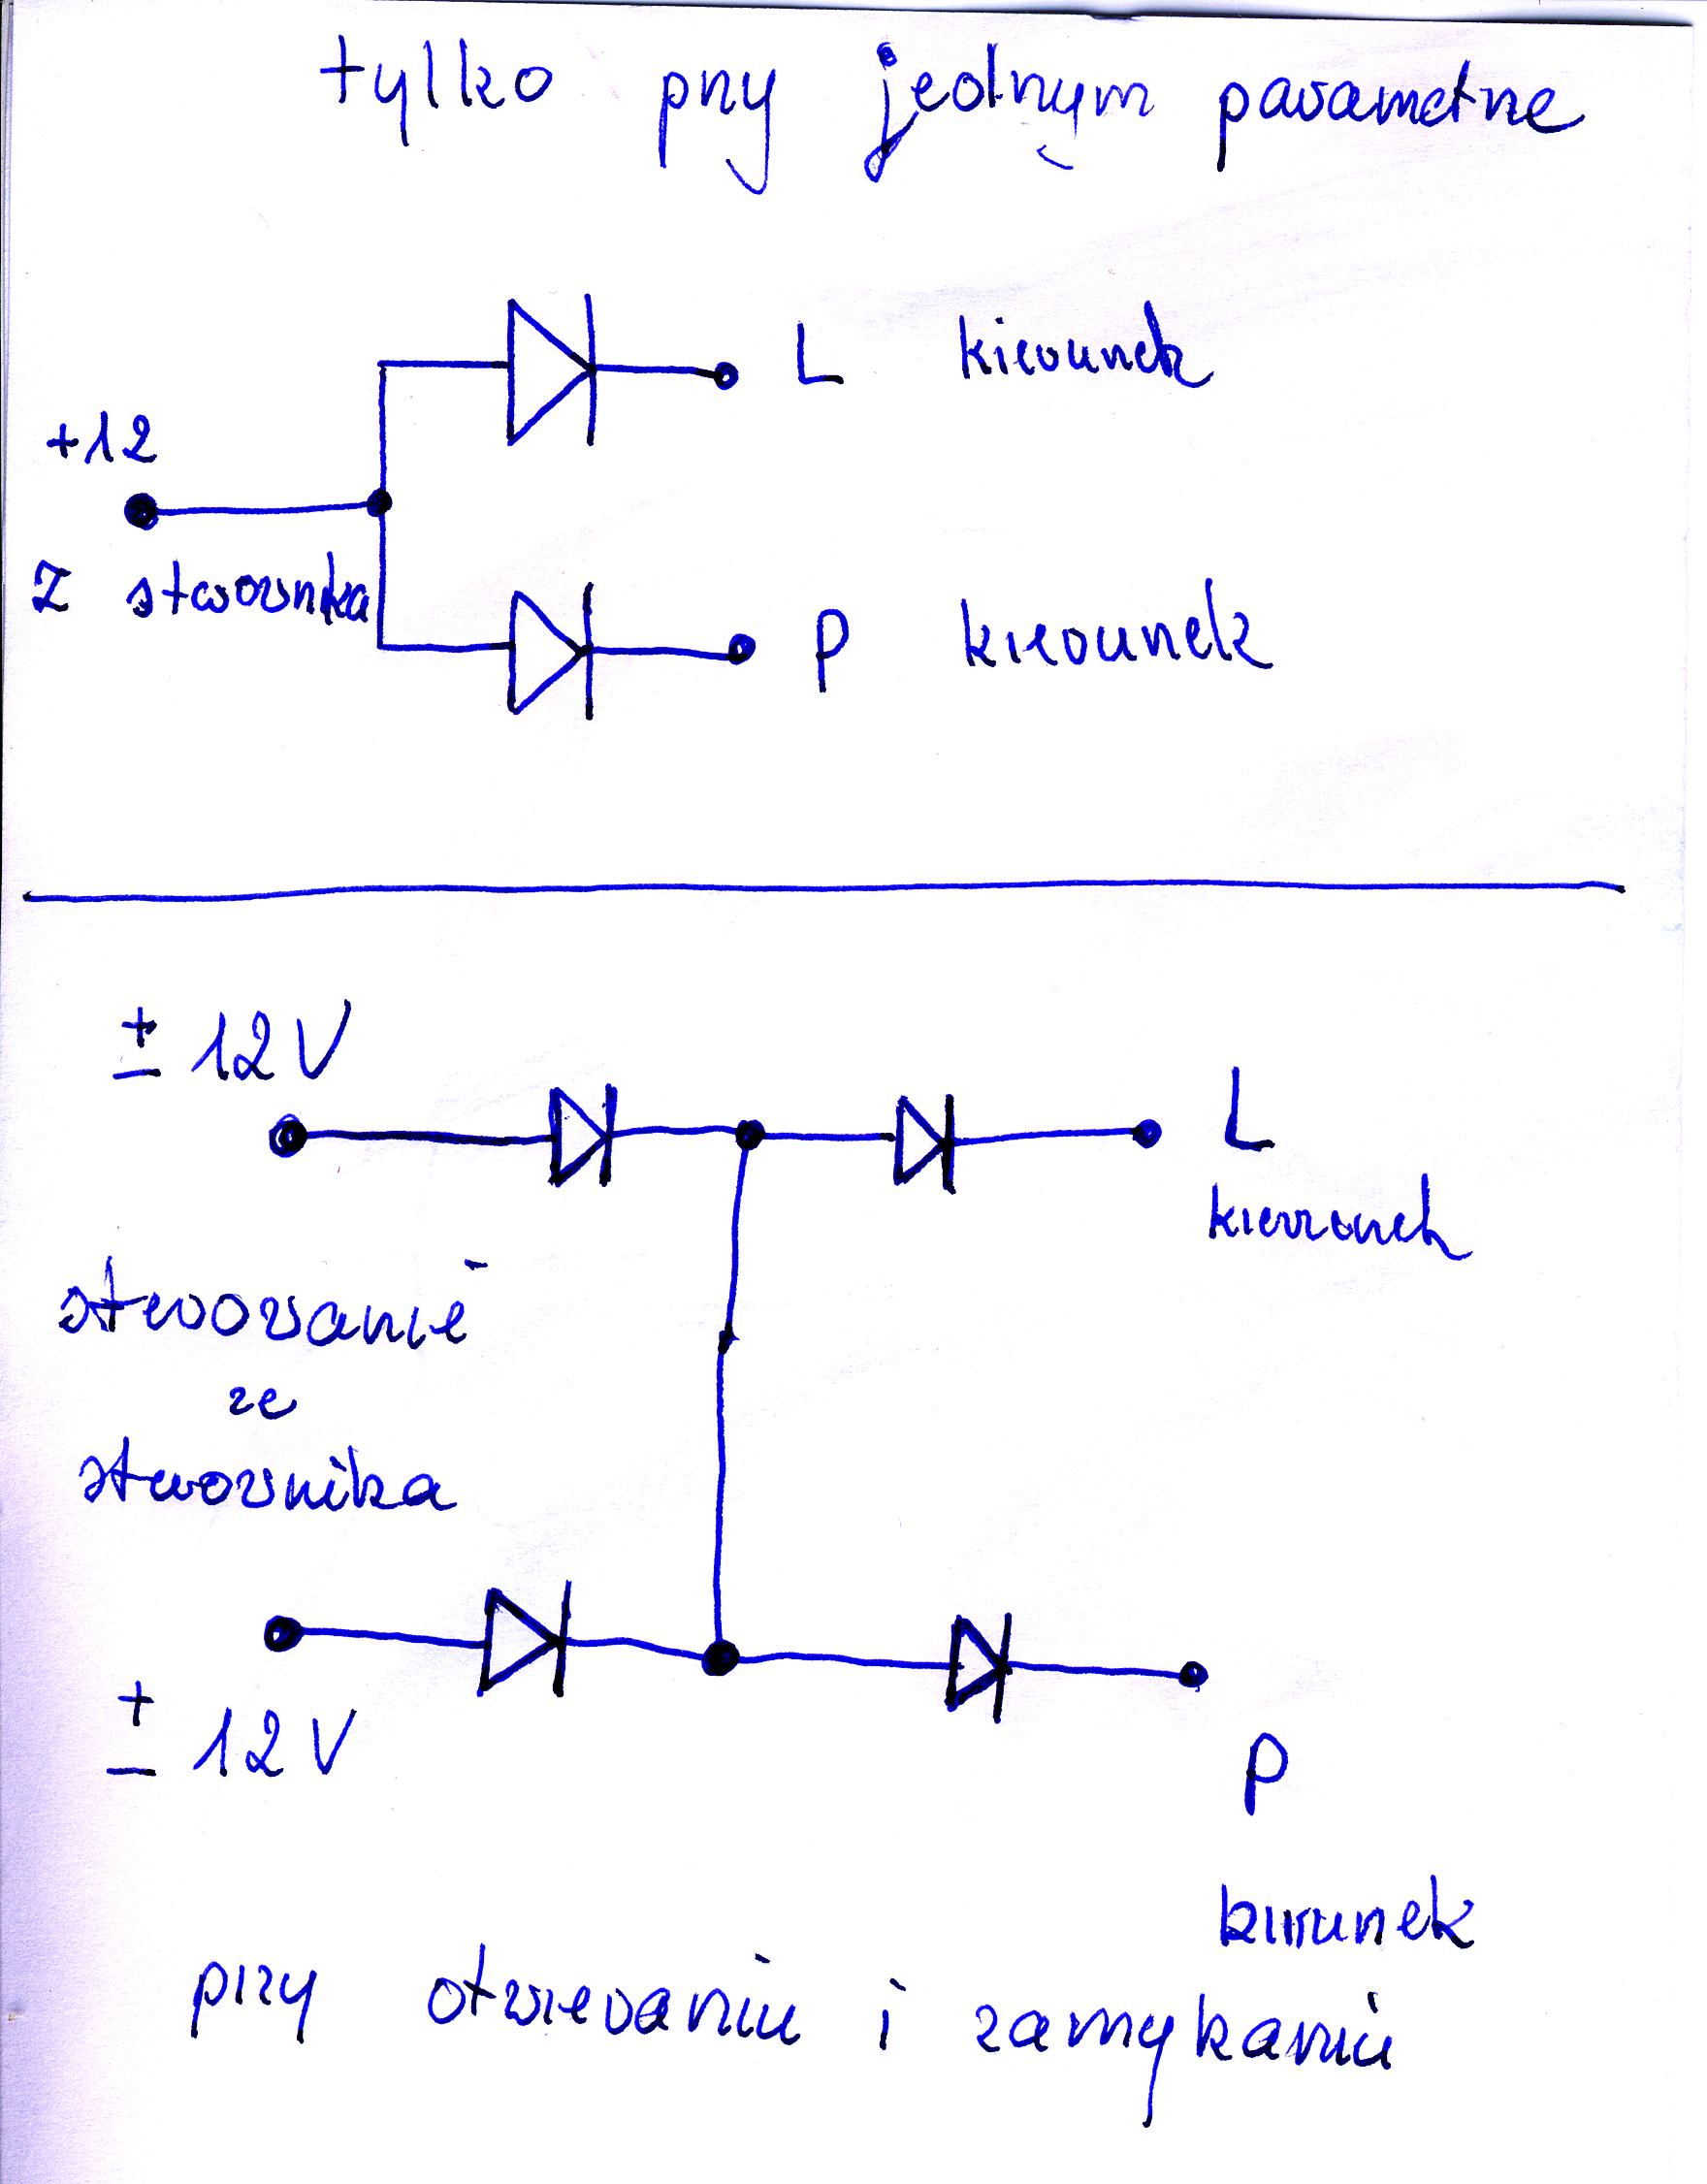 tylko przy jednym parametrze
L kierunek
+12
z sterownika
P kierunek
± 12V
L
kierunek
sterowanie
ze
sterownika
± 12V
P
kierunek
przy otwieraniu i zamykaniu